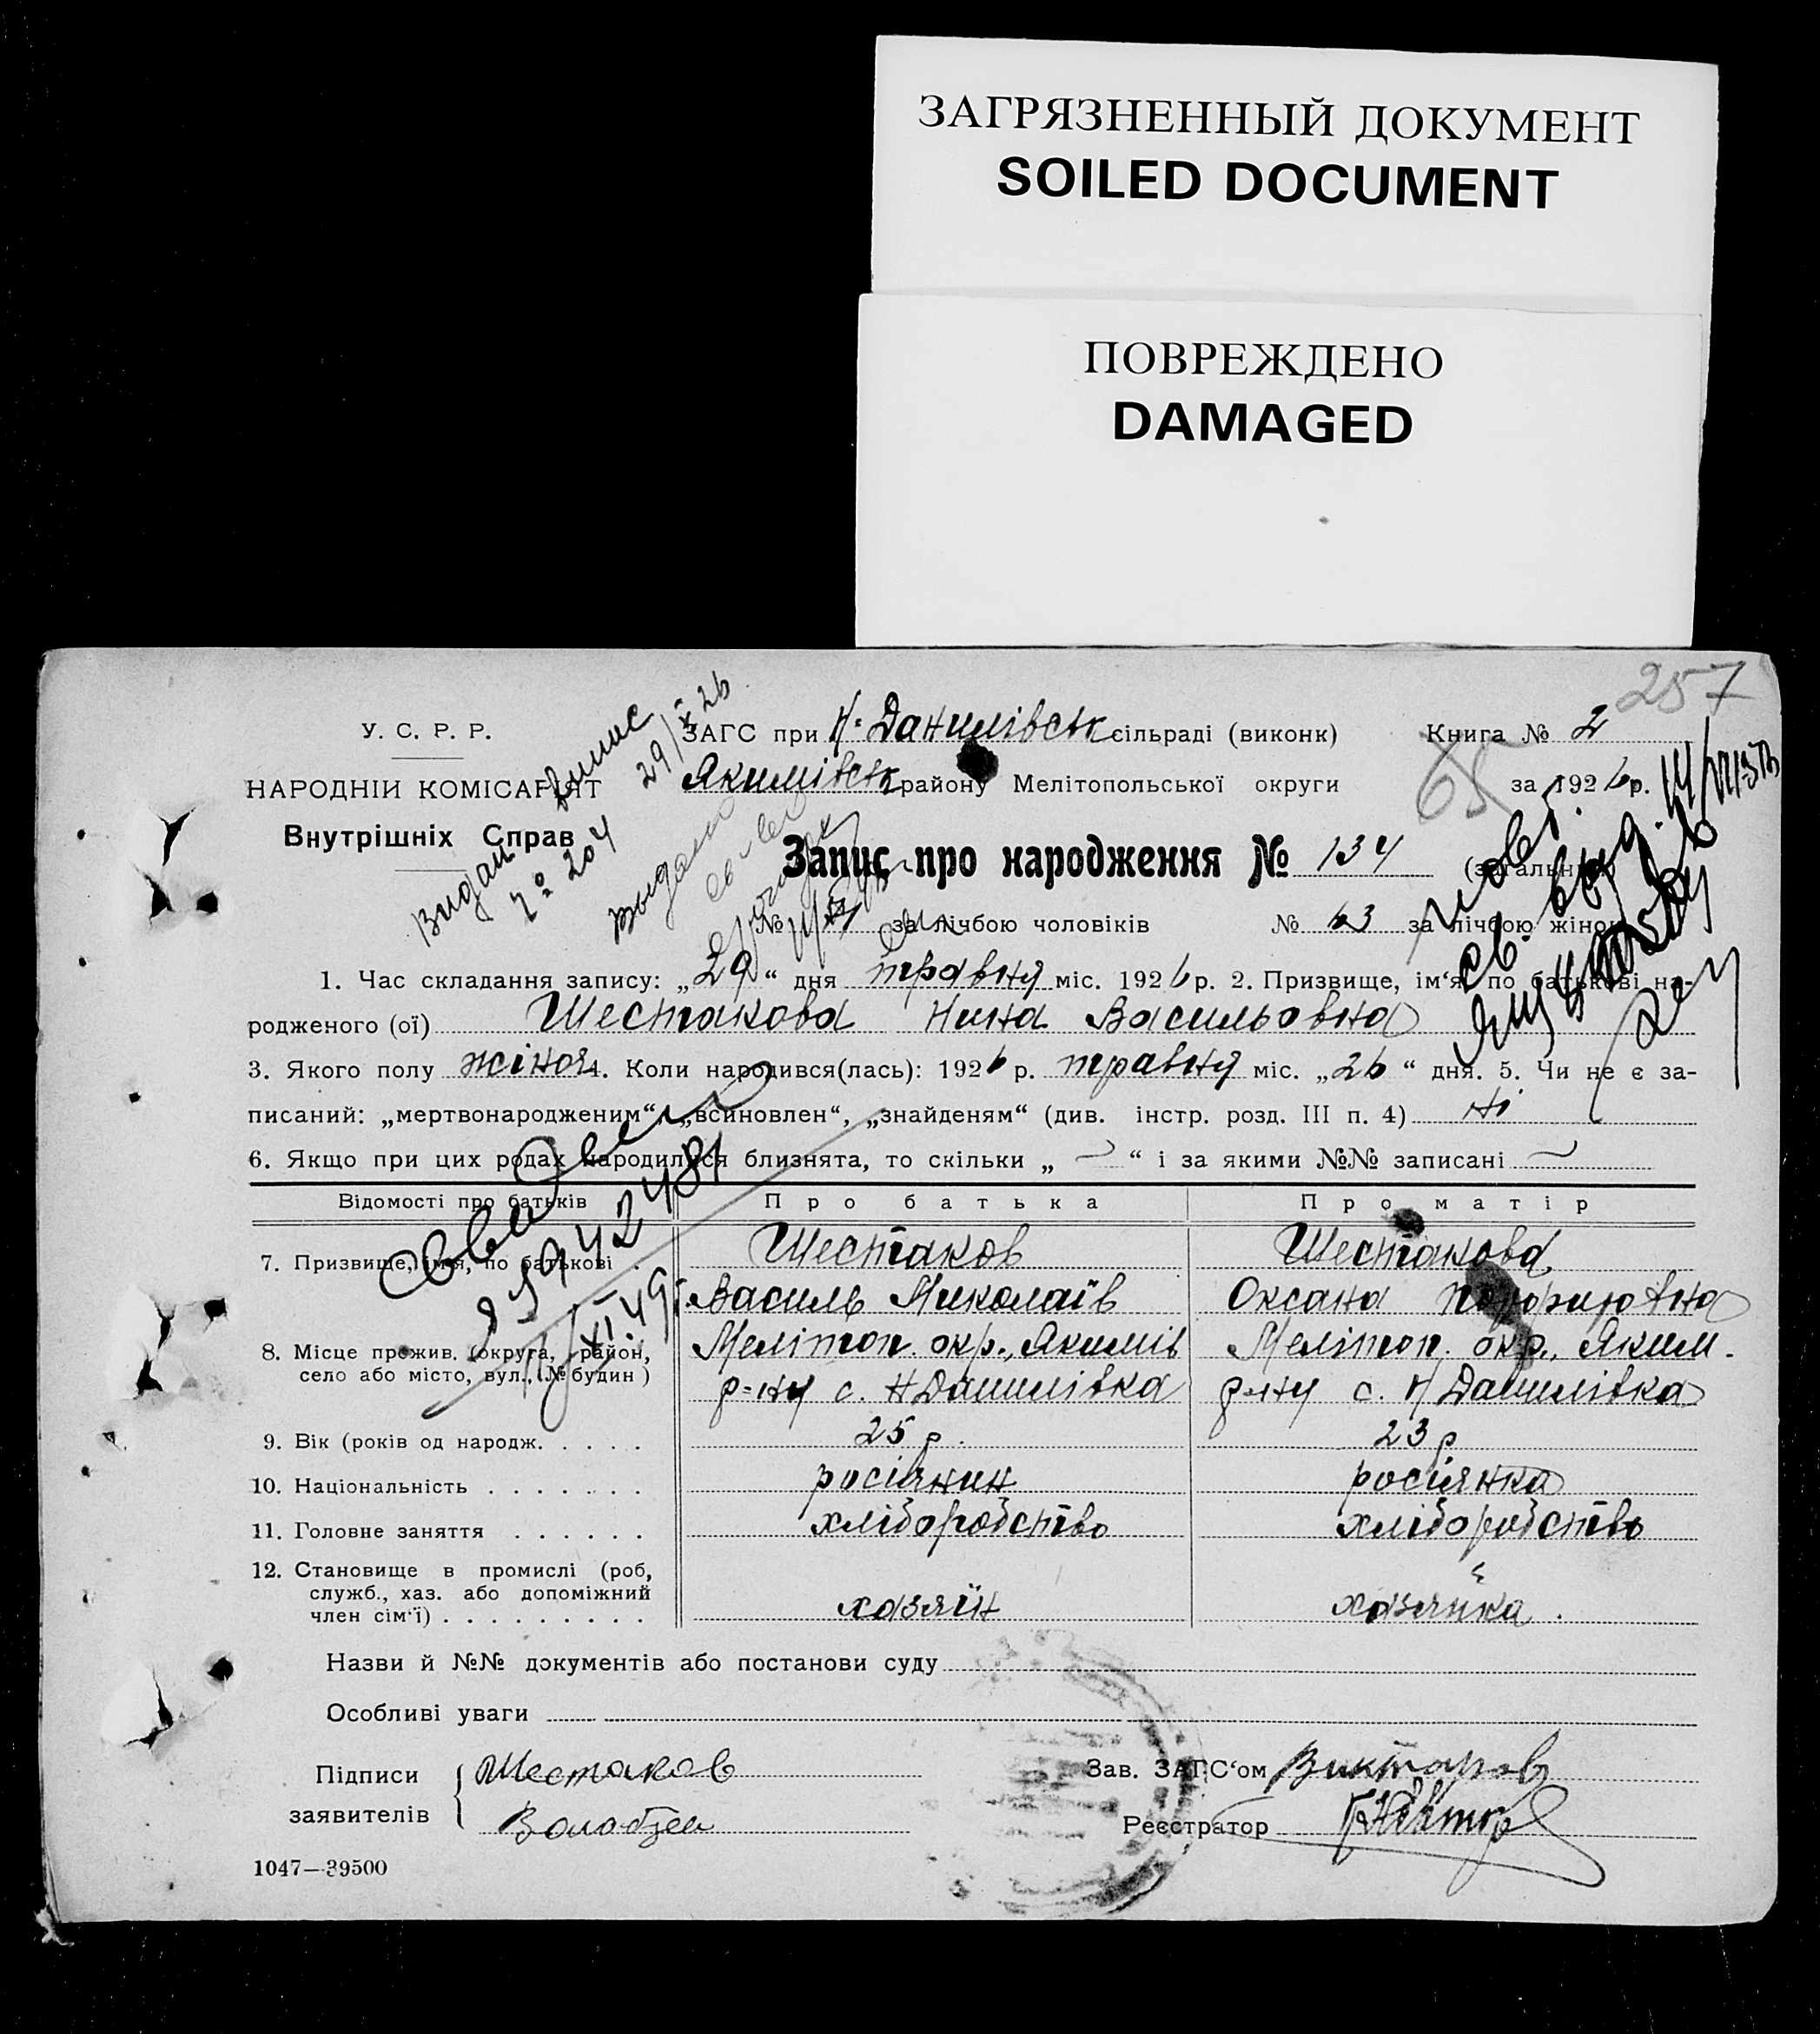 ЗАГРЯЗНЕННЫЙ ДОКУМЕНТ
SOILED DOCUMENT
ПОВРЕЖДЕНО
DAMAGED
257
У. С. Р. Р.
НАРОДНІЙ КОМІСАРІЯТ
Внутрішніх Справ
ЗАГС при Н-Данилівськ сільраді (виконк)
Якимівськ району Мелітопольської округи
Книга № 2
за 1926 р.
65
Видан випис
№ 204 29/X 26
Выдано
Запис про народження № 134 (загальний)
№ за лічбою чоловіків № 63 за лічбою жінок
1. Час складання запису: „29“ дня травня міс. 1926 р. 2. Призвище, ім‘я, по батькові на-
родженого (ої) Шестакова Нина Васильовна
3. Якого полу жіноч 4. Коли народився(лась): 1926 р. травня міс. „26“ дня. 5. Чи не є за-
писаний: „мертвонародженим“, „всиновлен“, „знайденям“ (див. інстр. розд. III п. 4) ні
6. Якщо при цих родах народилися близнята, то скільки „ “ і за якими №№ записані
Відомості про батьків
Про батька
Про матір
7. Призвище, ім‘я, по батькові
Шестаков
Василь Миколаїв
Шестакова
Оксана
8. Місце прожив. (округа, район,
село або місто, вул., № будин)
Меліттоп. окр., Якимів
р-ну с. Н Данилівка
Меліттоп. окр., Яким.
р-ну с. Н Данилівка
9. Вік (років од народж.
25 р.
23 р
10. Національність
росіянин
росіянка
11. Головне заняття
хліборобство
хліборобство
12. Становище в промислі (роб,
служб., хаз. або допоміжний
член сім‘ї)
хазяїн
хазяйка.
Назви й №№ документів або постанови суду
Особливі уваги
Підписи
заявителів
Шестаков
Зав. ЗАГС‘ом
Реєстратор
1047—39500